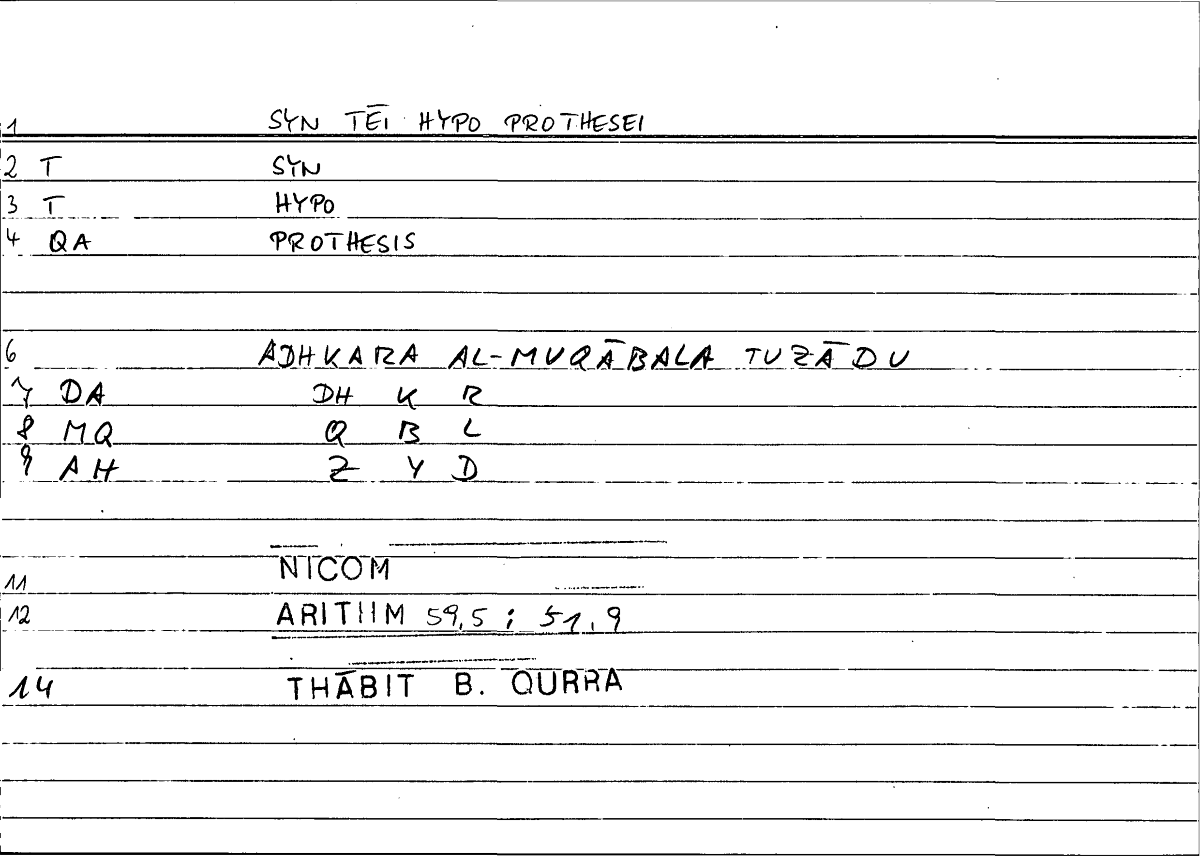 1 SYN TĒI HYPO PROTHESEI
2 T SYN
3 T HYPO
4 QA PROTHESIS
6 ADHKARA AL-MUQĀBALA TUZĀDU
7 DA DH K R
8 MQ Q B L
9 AH Z Y D
11 NICOM
12 ARITIIM 59,5 ; 51,9
14 THĀBIT B. QURRA